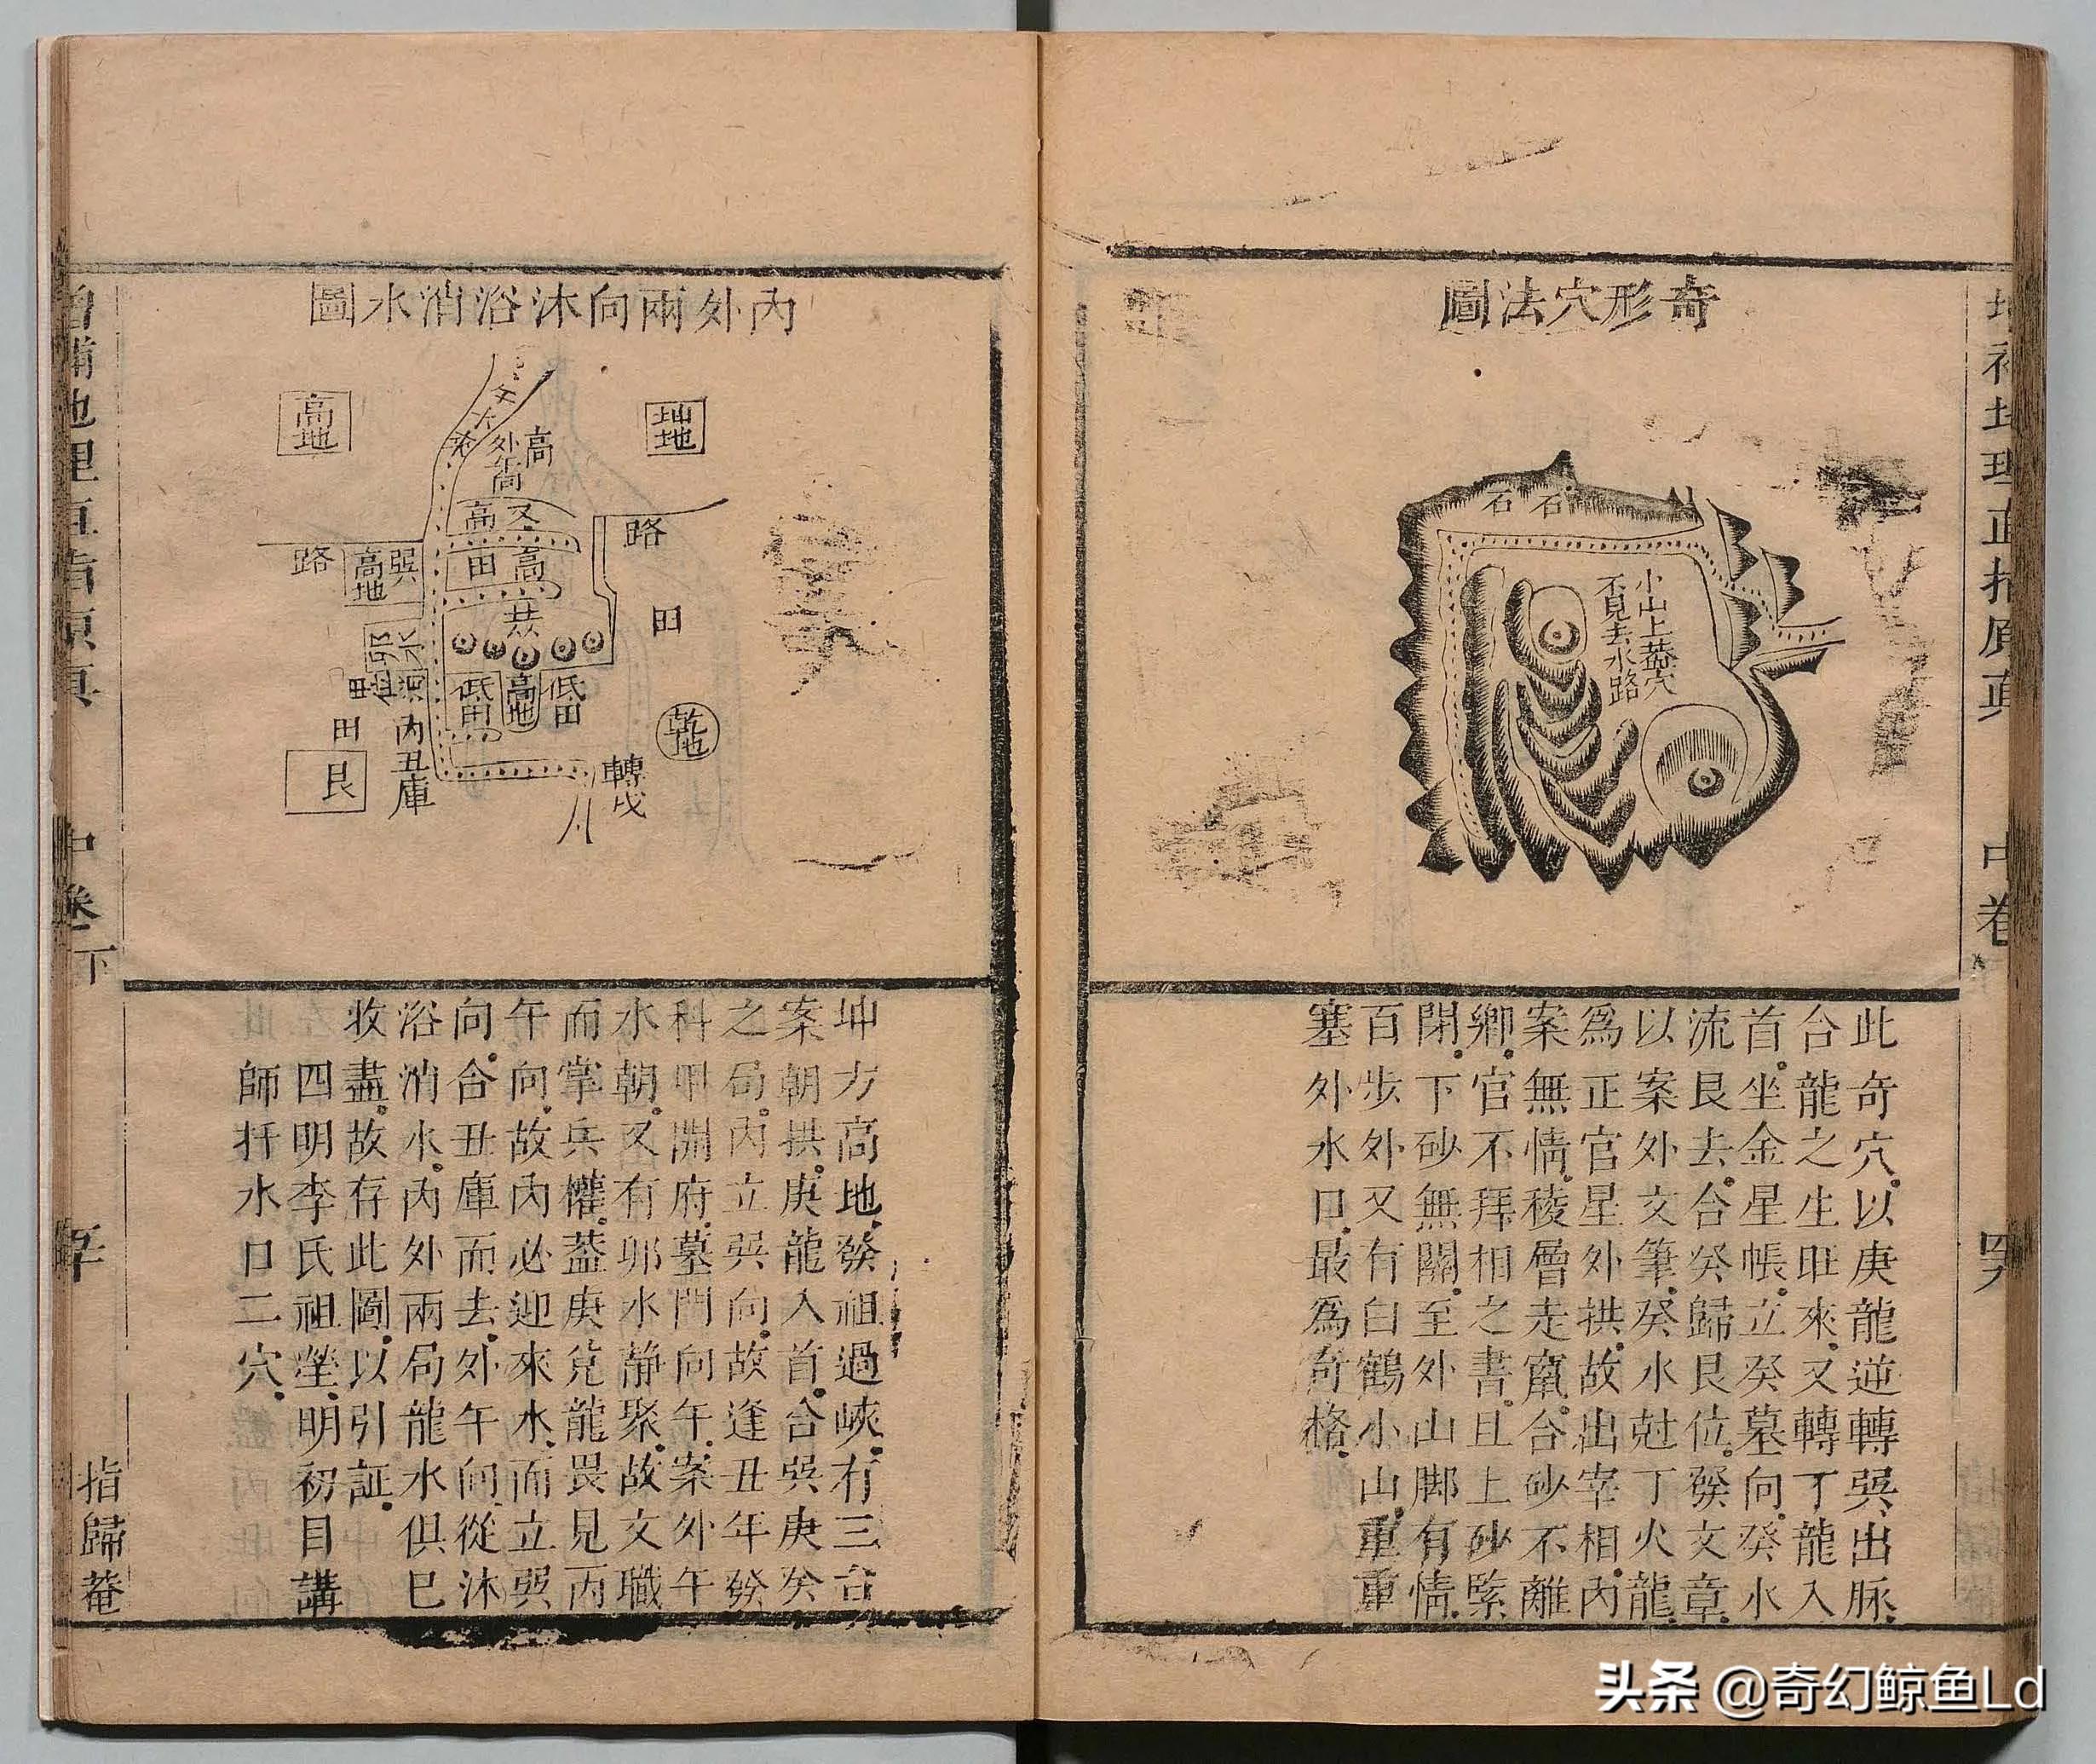 奇形穴法圖
石
石
小山上塟穴
不見去水路
此奇穴以庚龍逆轉巽出脉
合龍之生旺來又轉丁龍入
首坐金星帳立癸墓向癸水
流艮去合癸歸艮位發文章
以案外文筆癸水尅丁火龍
為正官星外拱故出宰相內
案無情稜層走竄合砂不離
鄉官不拜相之書且上砂緊
閉下砂無關至外山脚有情
百步外又有白鶴小山重重
塞外水口最為奇格
內外兩向沐浴消水圖
坤地
高地
高
外午向
又高
路
路
巽高地
高田
塟
田
卯水
低田
高地
低田
甲
田
內丑庫
乾地
艮
轉戌
坤方高地發祖過峽有三台
案朝拱庚龍入首合巽庚癸
之局內立巽向故逢丑年發
科甲開府墓門向午案外午
水朝又有卯水静聚故文職
而掌兵權葢庚兌龍畏見丙
午向故內必迎來水而立巽
向合丑庫而去外午向從沐
浴消水內外兩局龍水俱已
收盡故存此圖以引証
四明李氏祖塋明初目講
師扦水口二穴
中卷下
指歸菴
头条 @奇幻鲸鱼Ld